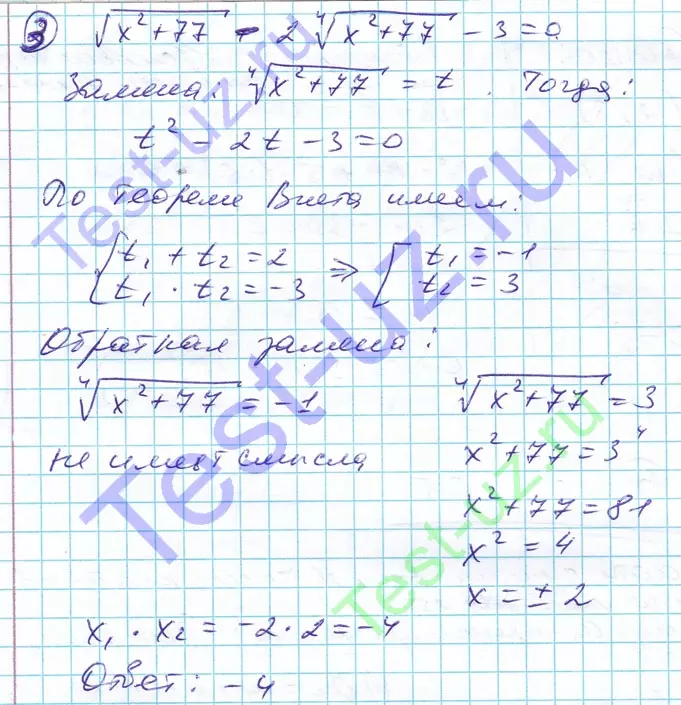 3) √(x²+77) - 2 ∜(x²+77) - 3 = 0
Замена: ∜(x²+77) = t. Тогда:
t² - 2t - 3 = 0
По теореме Виета имеем:
{ t₁ + t₂ = 2
{ t₁ · t₂ = -3 ⇒ [ t₁ = -1
[ t₂ = 3
Обратная замена:
∜(x²+77) = -1
не имеет смысла
∜(x²+77) = 3
x²+77 = 3⁴
x²+77 = 81
x² = 4
x = ± 2
x₁ · x₂ = -2 · 2 = -4
Ответ: -4
Test-uz.ru
Test-uz.ru
Test-uz.ru